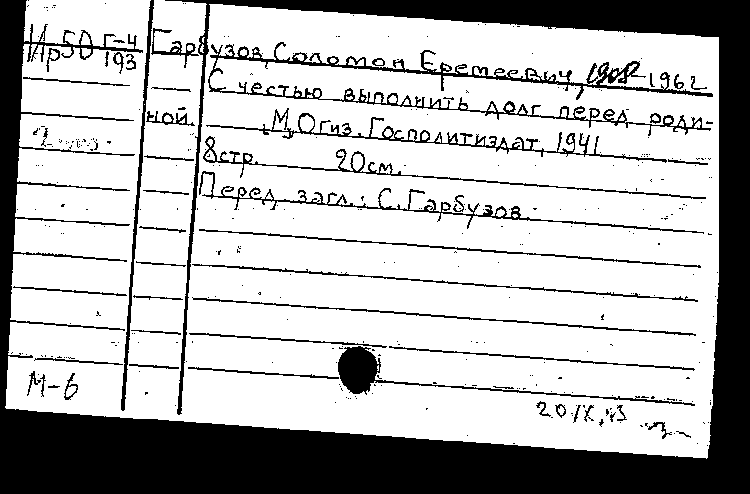 Ир50 Г-4 Гарбузов, Соломон Еремеевич, 1908-1962
193
С честью выполнить долг перед роди-
ной. М, Огиз. Госполитиздат, 1941
8стр. 20см.
Перед загл.: С. Гарбузов.
М-6
20/IX,43